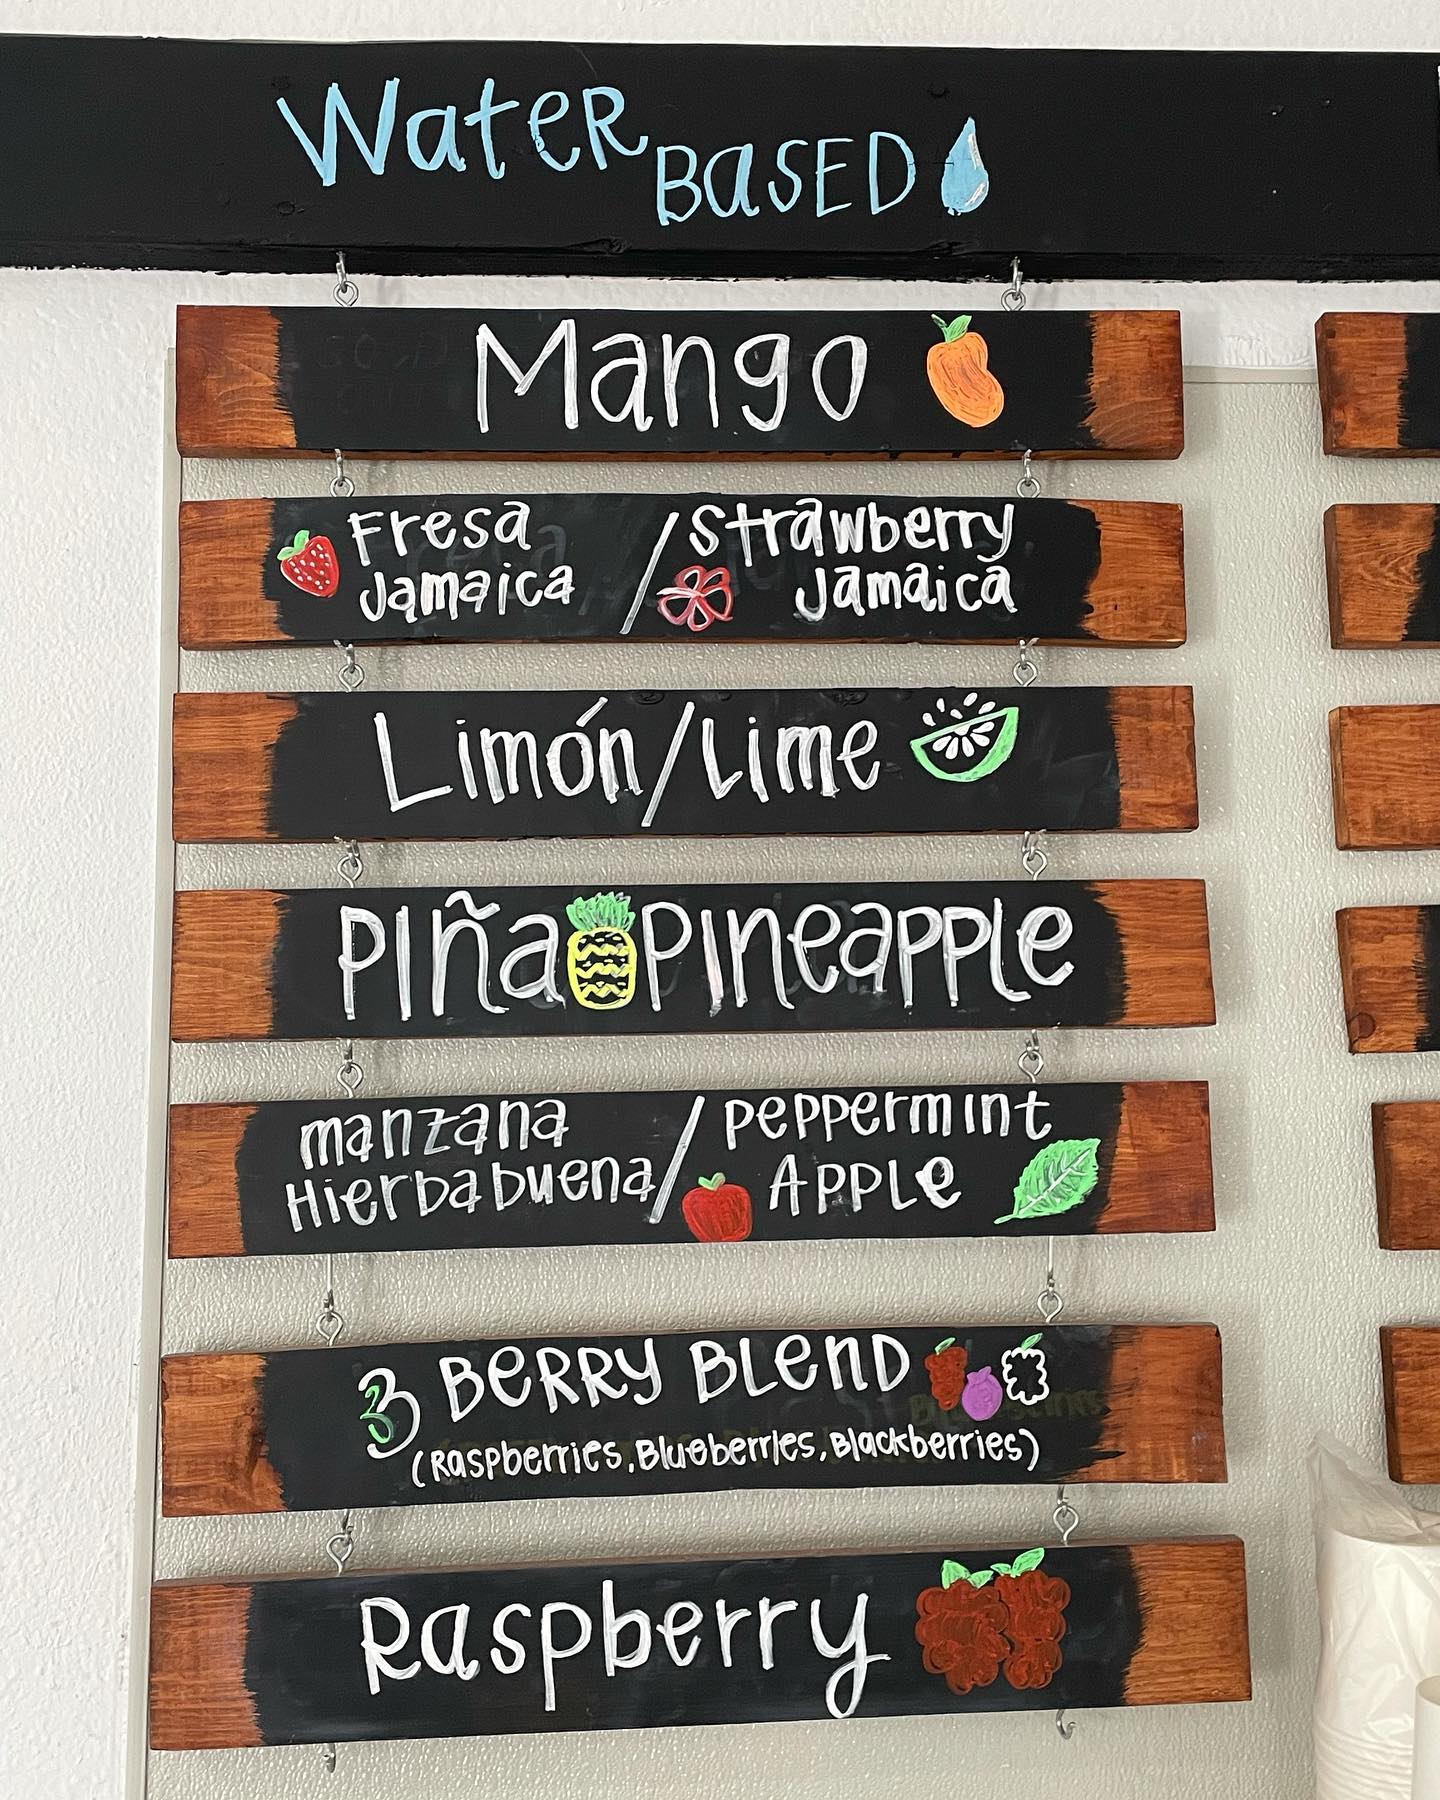 Water BASED
Mango
Fresa / Strawberry
Jamaica Jamaica
Limón/Lime
Piña Pineapple
manzana / Peppermint
Hierbabuena Apple
3 Berry Blend
(Raspberries, Blueberries, Blackberries)
Raspberry